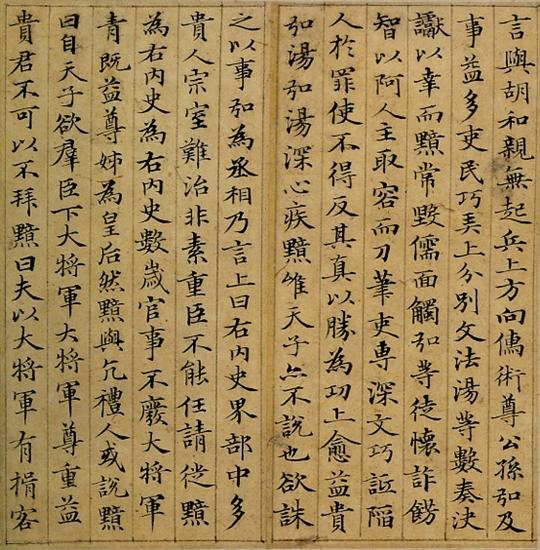 言與胡和親無起兵上方向儒術尊公孫弘及
事益多吏民巧弄上分別文法湯等數奏決
讞以幸而黯常毀儒面觸弘等徒懷詐飾
智以阿人主取容而刀筆吏專深文巧詆陷
人於罪使不得反其真以勝為功上愈益貴
弘湯弘湯深心疾黯維天子亦不說也欲誅
之以事弘為丞相乃言上曰右內史界部中多
貴人宗室難治非素重臣不能任請徙黯
為右內史為右內史數歲官事不廢大將軍
青既益尊姊為皇后然黯與亢禮人或說黯
曰自天子欲羣臣下大將軍大將軍尊重益
貴君不可以不拜黯曰夫以大將軍有揖客